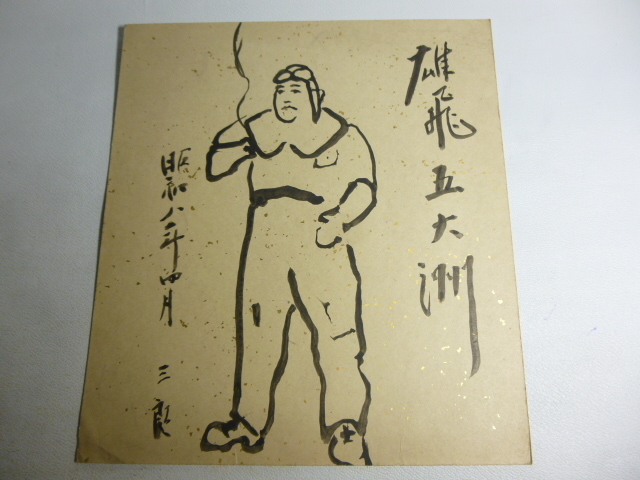 雄飛五大洲
昭和八年四月
三郎